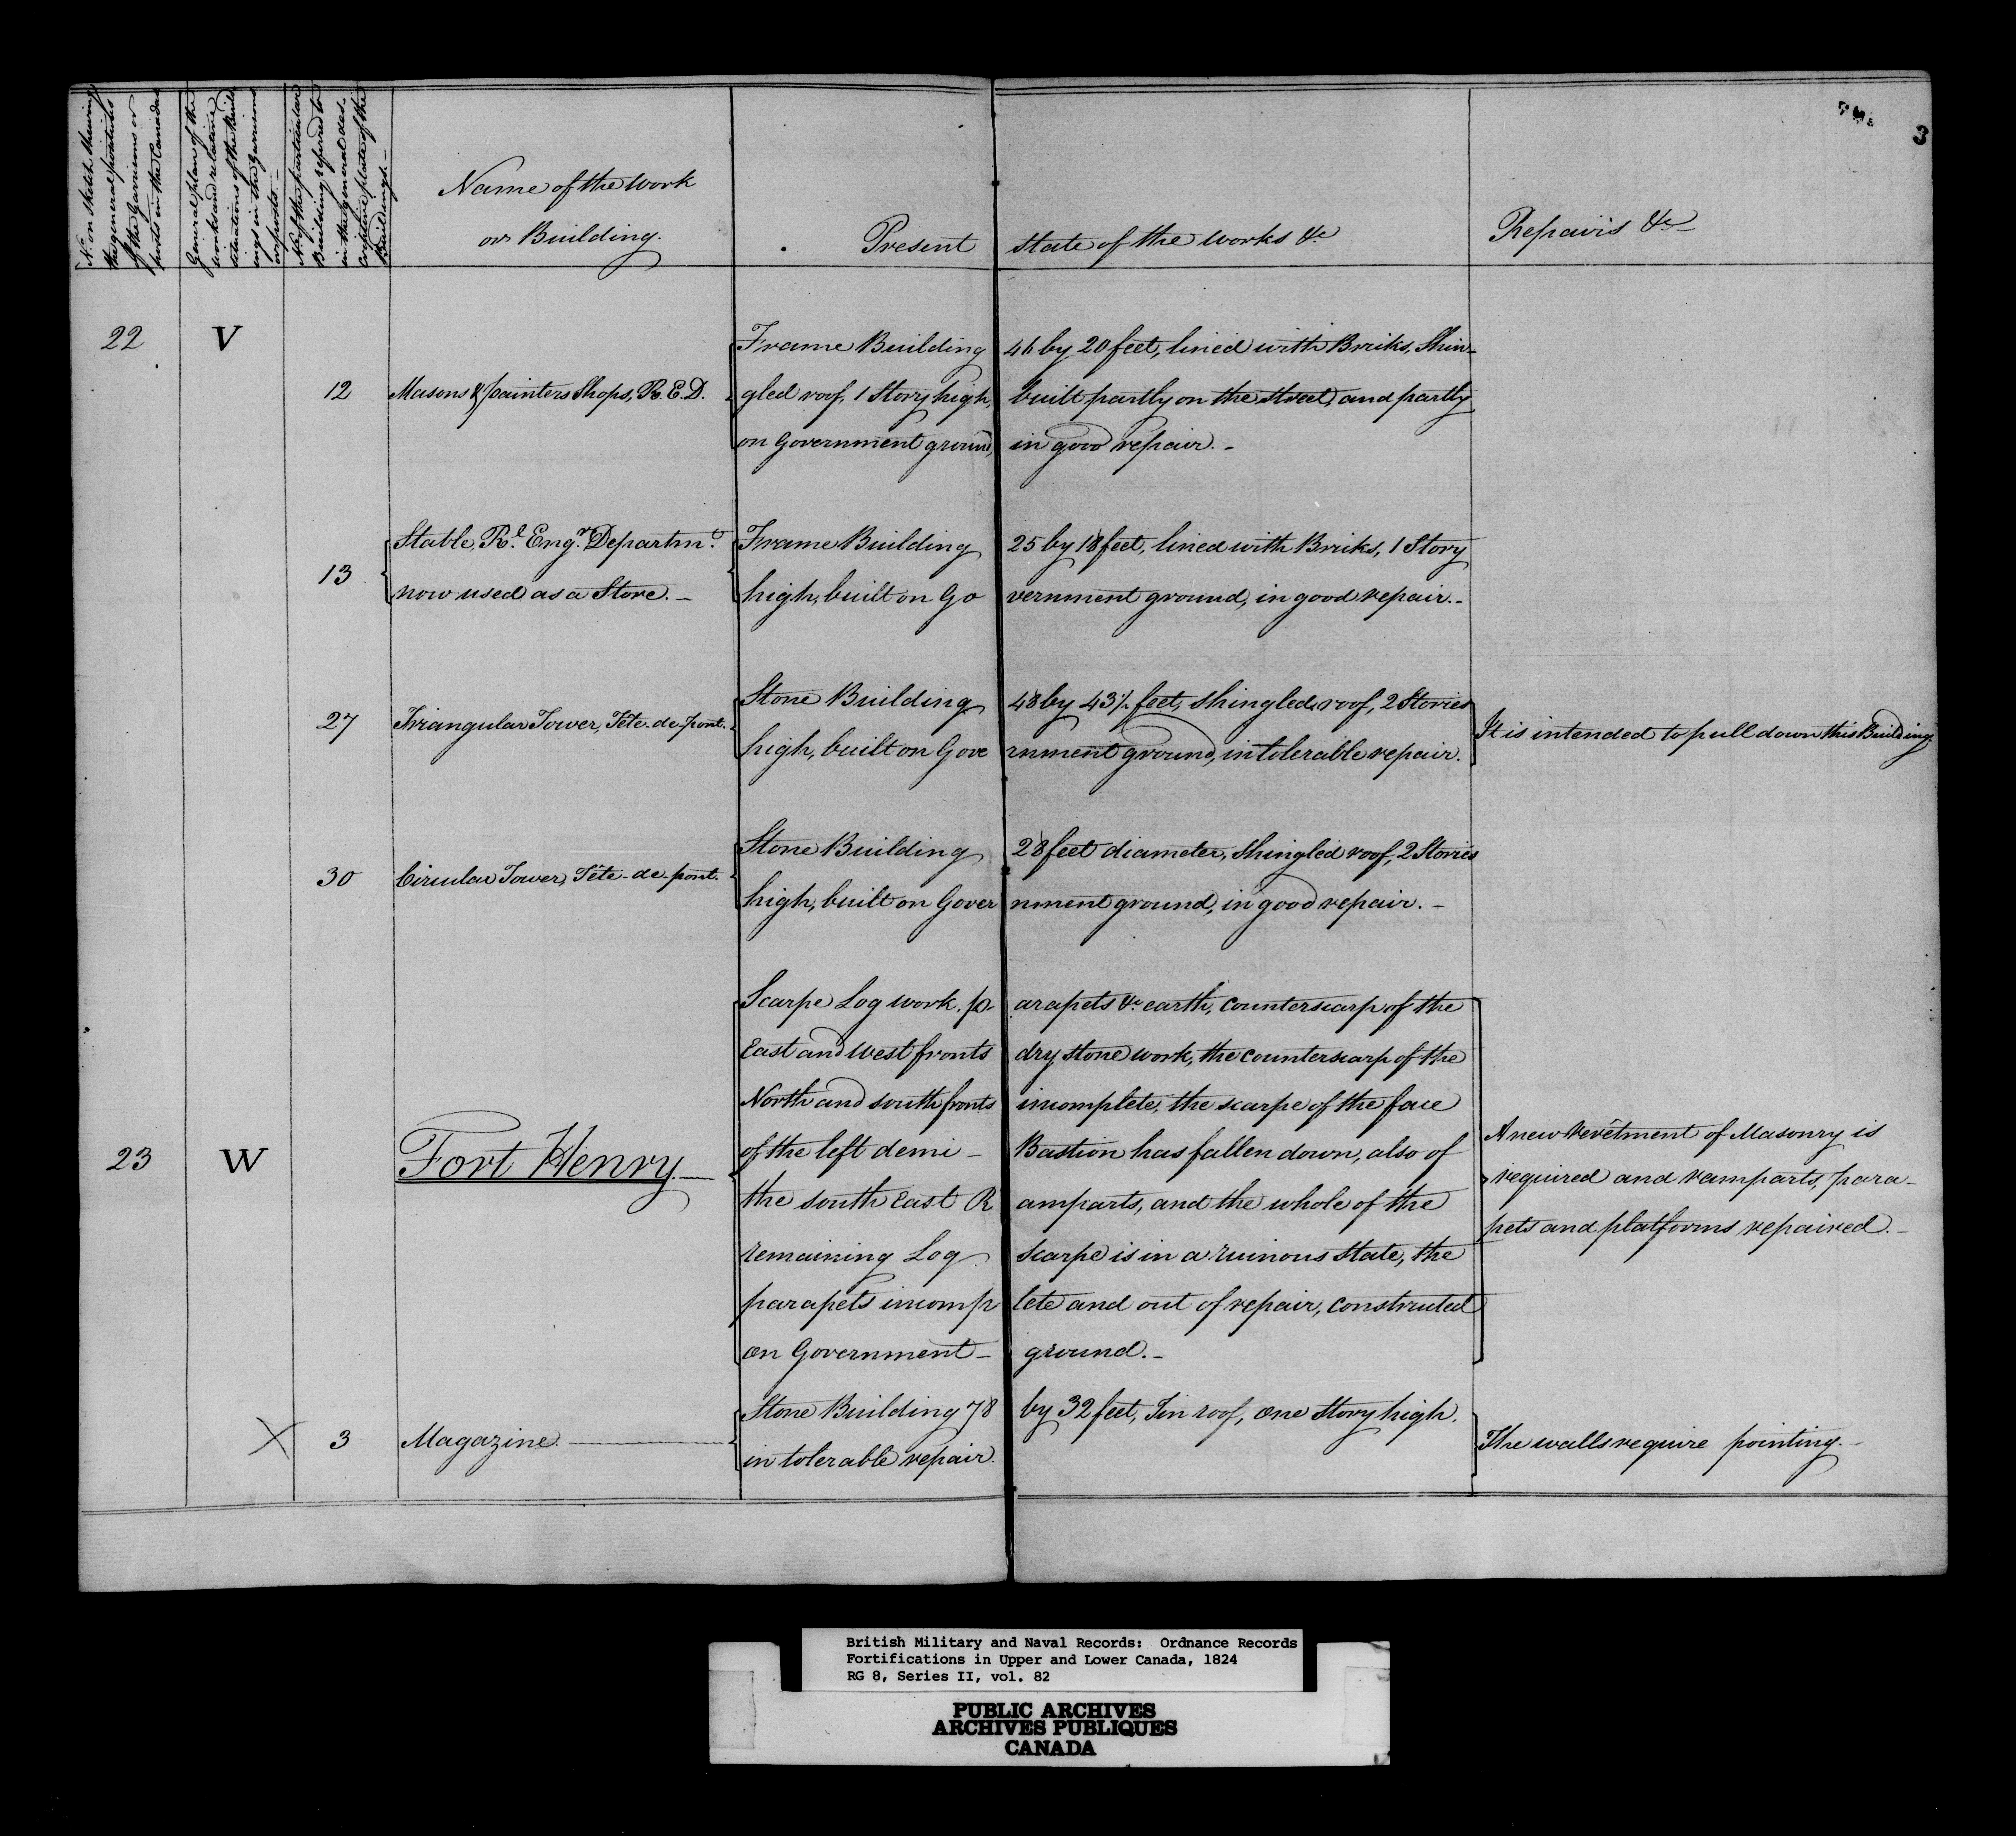 3
No. on Sketch shewing
the general positions
of the Garrisons or
posts in the Canadas
General plan of the
works and relative
situations of the Build
ings in the Garrisons
or posts.
No. of the particular
Building referred to
in the general des-
criptive plate of the
Buildings.
Name of the Work
or Building.
Present state of the works &c
Repairs &c
22 V
12 Masons & painters Shops, R.E.D.
Frame Building 46 by 20 feet, lined with Bricks, Shin-
gled roof, 1 Story high, built partly on the street, and partly
on Government ground, in good repair.
13 Stable, Rl. Engr. Departmt.
now used as a Store.
Frame Building 25 by 18 feet, lined with Bricks, 1 Story
high, built on Government ground, in good repair.
27 Triangular Tower, Tête-de-pont.
Stone Building 48 by 43½ feet, shingled roof, 2 Stories
high, built on Government ground, in tolerable repair.
It is intended to pull down this Building.
30 Circular Tower, Tête-de-pont.
Stone Building 28 feet diameter, shingled roof, 2 Stories
high, built on Government ground, in good repair.
23 W Fort Henry.
Scarpe Log work, parapets &c earth, counterscarp of the
East and West fronts dry stone work, the counterscarp of the
North and south fronts incomplete, the scarpe of the face
of the left demi-Bastion has fallen down, also of
the south East Ramparts, and the whole of the
remaining Log scarpe is in a ruinous state, the
parapets incomplete and out of repair, constructed
on Government ground.
A new Revêtment of Masonry is
required and ramparts, para-
pets and platforms repaired.
X 3 Magazine.
Stone Building 78 by 32 feet, Tin roof, one Story high.
in tolerable repair.
The walls require pointing.
British Military and Naval Records: Ordnance Records
Fortifications in Upper and Lower Canada, 1824
RG 8, Series II, vol. 82
PUBLIC ARCHIVES
ARCHIVES PUBLIQUES
CANADA